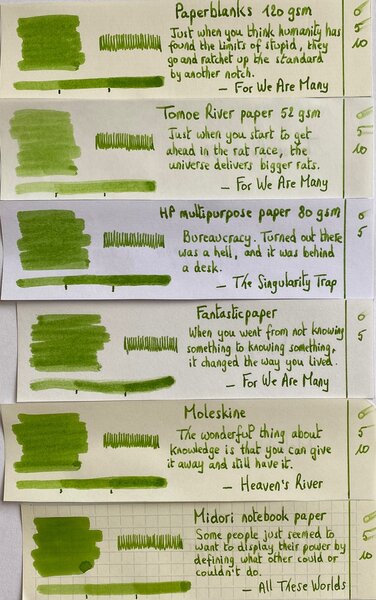 Paperblanks 120 gsm
Just when you think humanity has
found the limits of stupid, they
go and ratchet up the standard
by another notch.
— For We Are Many
0
5
10
Tomoe River paper 52 gsm
Just when you start to get
ahead in the rat race, the
universe delivers bigger rats.
— For We Are Many
0
5
10
HP multipurpose paper 80 gsm
Bureaucracy. Turned out there
was a hell, and it was behind
a desk.
— The Singularity Trap
0
5
Fantasticpaper
When you went from not knowing
something to knowing something,
it changed the way you lived.
— For We Are Many
0
5
Moleskine
The wonderful thing about
knowledge is that you can give
it away and still have it.
— Heaven's River
0
5
10
Midori notebook paper
Some people just seemed to
want to display their power by
defining what other could or
couldn't do.
— All These Worlds
0
5
10